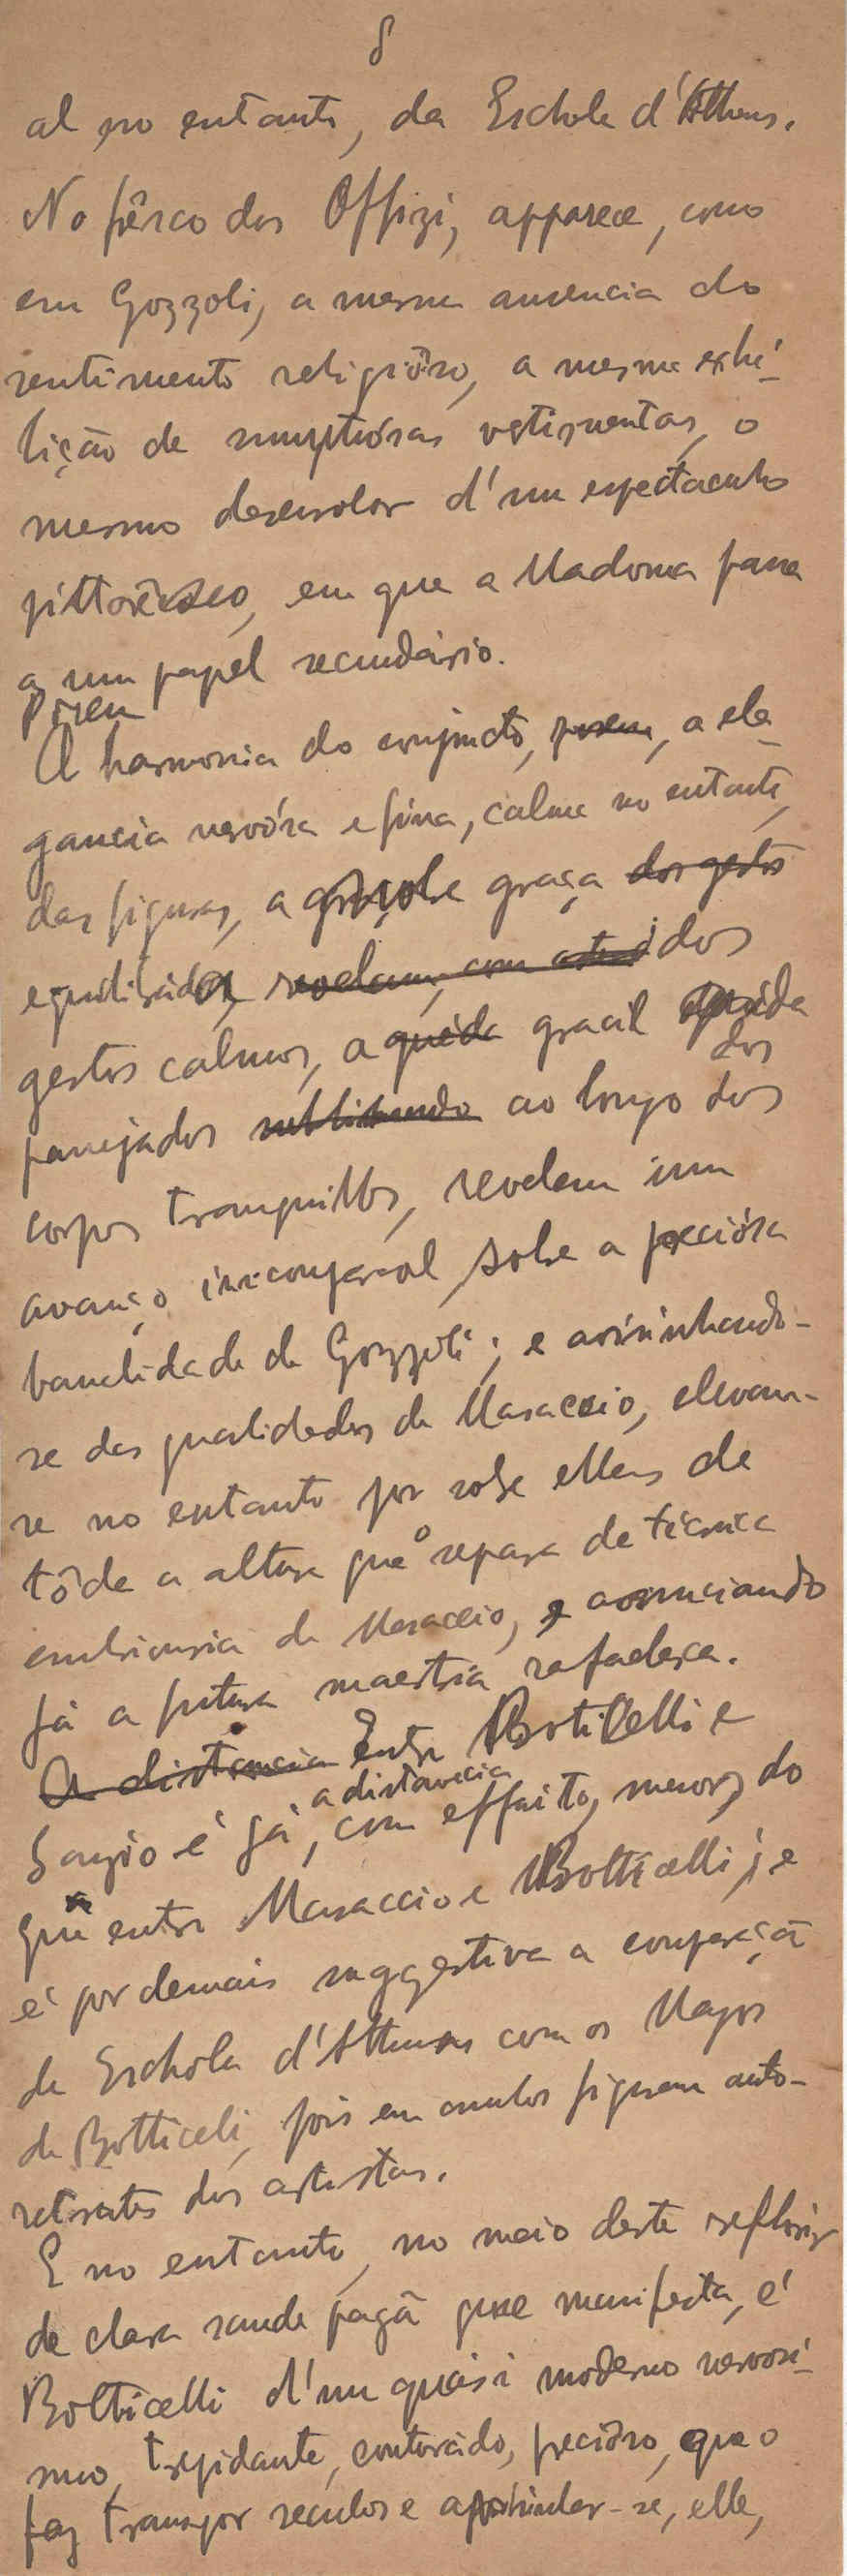 8
al no entanto, da Eschola d'Athenas.
No frêsco dos Offizi, apparece, como
em Gozzoli, a mesma ausencia do
sentimento religiôso, a mesma exhi-
bição de sumptuósas vestimentas, o
mesmo desenrolar d'um espectaculo
pittorêsco, em que a Madona passa
a um papel secundário.
Porem
A harmonia do conjuncto, porem, a ele-
gancia nervósa e fina, calma no entanto,
das figuras, a graça dos gestos
equilibrada, revelam, com dos
gestos calmos, a quéda gracil quéda
dos
panejados ao longo dos
corpos tranquillos, revelam um
avanço incomparavel sobre a preciósa
banalidade de Gozzoli; e avisinhando-
se das qualidades de Masaccio, elevam-
se no entanto por sobre ellas de
tôda a altura que o separa da técnica
embrionaria de Masaccio, e annunciando
já a futura maestria rafaelesca.
A distancia Entre Botticelli e
a distancia
Sanzio é já, com effeito, menor, do
que entre Masaccio e Botticelli; e
é por demais suggestiva a comparaçã
da Eschola d'Athenas com os Magos
de Botticeli, pois em ambos figuram auto-
retratos dos artistas.
E no entanto, no meio deste reflorir
de clara saude pagã que manifesta, é
Botticelli d'um quási moderno nervosi-
smo, trepidante, contorcido, preciôso, que o
faz transpor seculos e apparentar-se, elle,